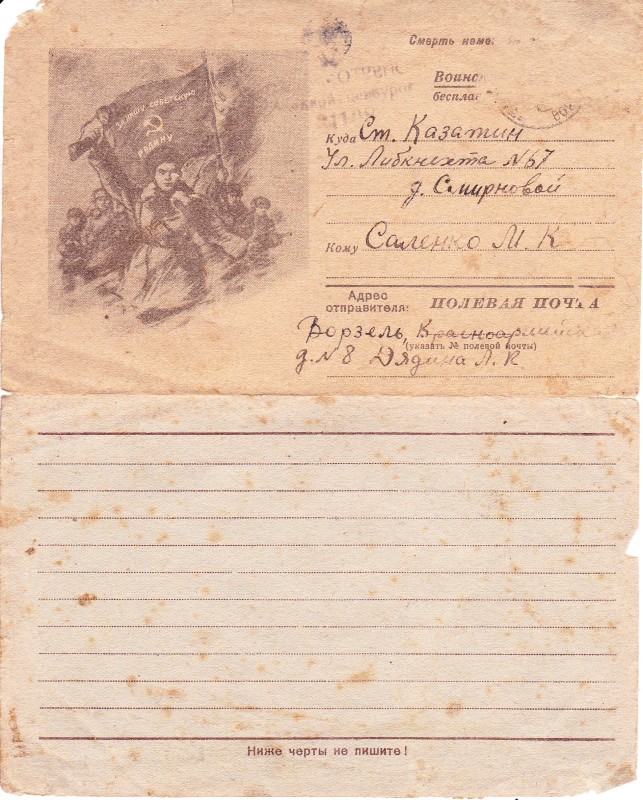 Смерть неме
Воинс
беспла
ЗА НАШУ СОВЕТСКУЮ
УКРАИНУ
Куда Ст. Казатин
Ул. Либкнехта №57
д. Смирновой
Кому Саленко М. К
Адрес
отправителя: ПОЛЕВАЯ ПОЧТА
Ворзель, Красноармейская
(указать № полевой почты)
д. № 8 Дядина Л. К
Ниже черты не пишите!